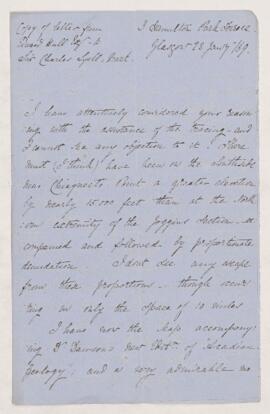 Copy of letter from
Edwd Hull Esqr to
Sir Charles Lyell, Bart.
3 Hamilton Park Terrace
Glasgow 28 Jany /69.
I have attentively considered your reason
ing with the assistance of the tracing, and
I cannot see any objection to it. There
must (I think) have been on the
near Chiegnecto Point a greater elevation
by nearly 15.000 feet than at the North
ern extremity of the Joggins Section - ac
companied and followed by proportionate
denudation. I dont see any escape
from these proportions - though occurr
ing in only the space of 10 miles
I have now the Map accompany
ing Dr Dawson's new Editn. of "Acadian
Geology", and a very admirable